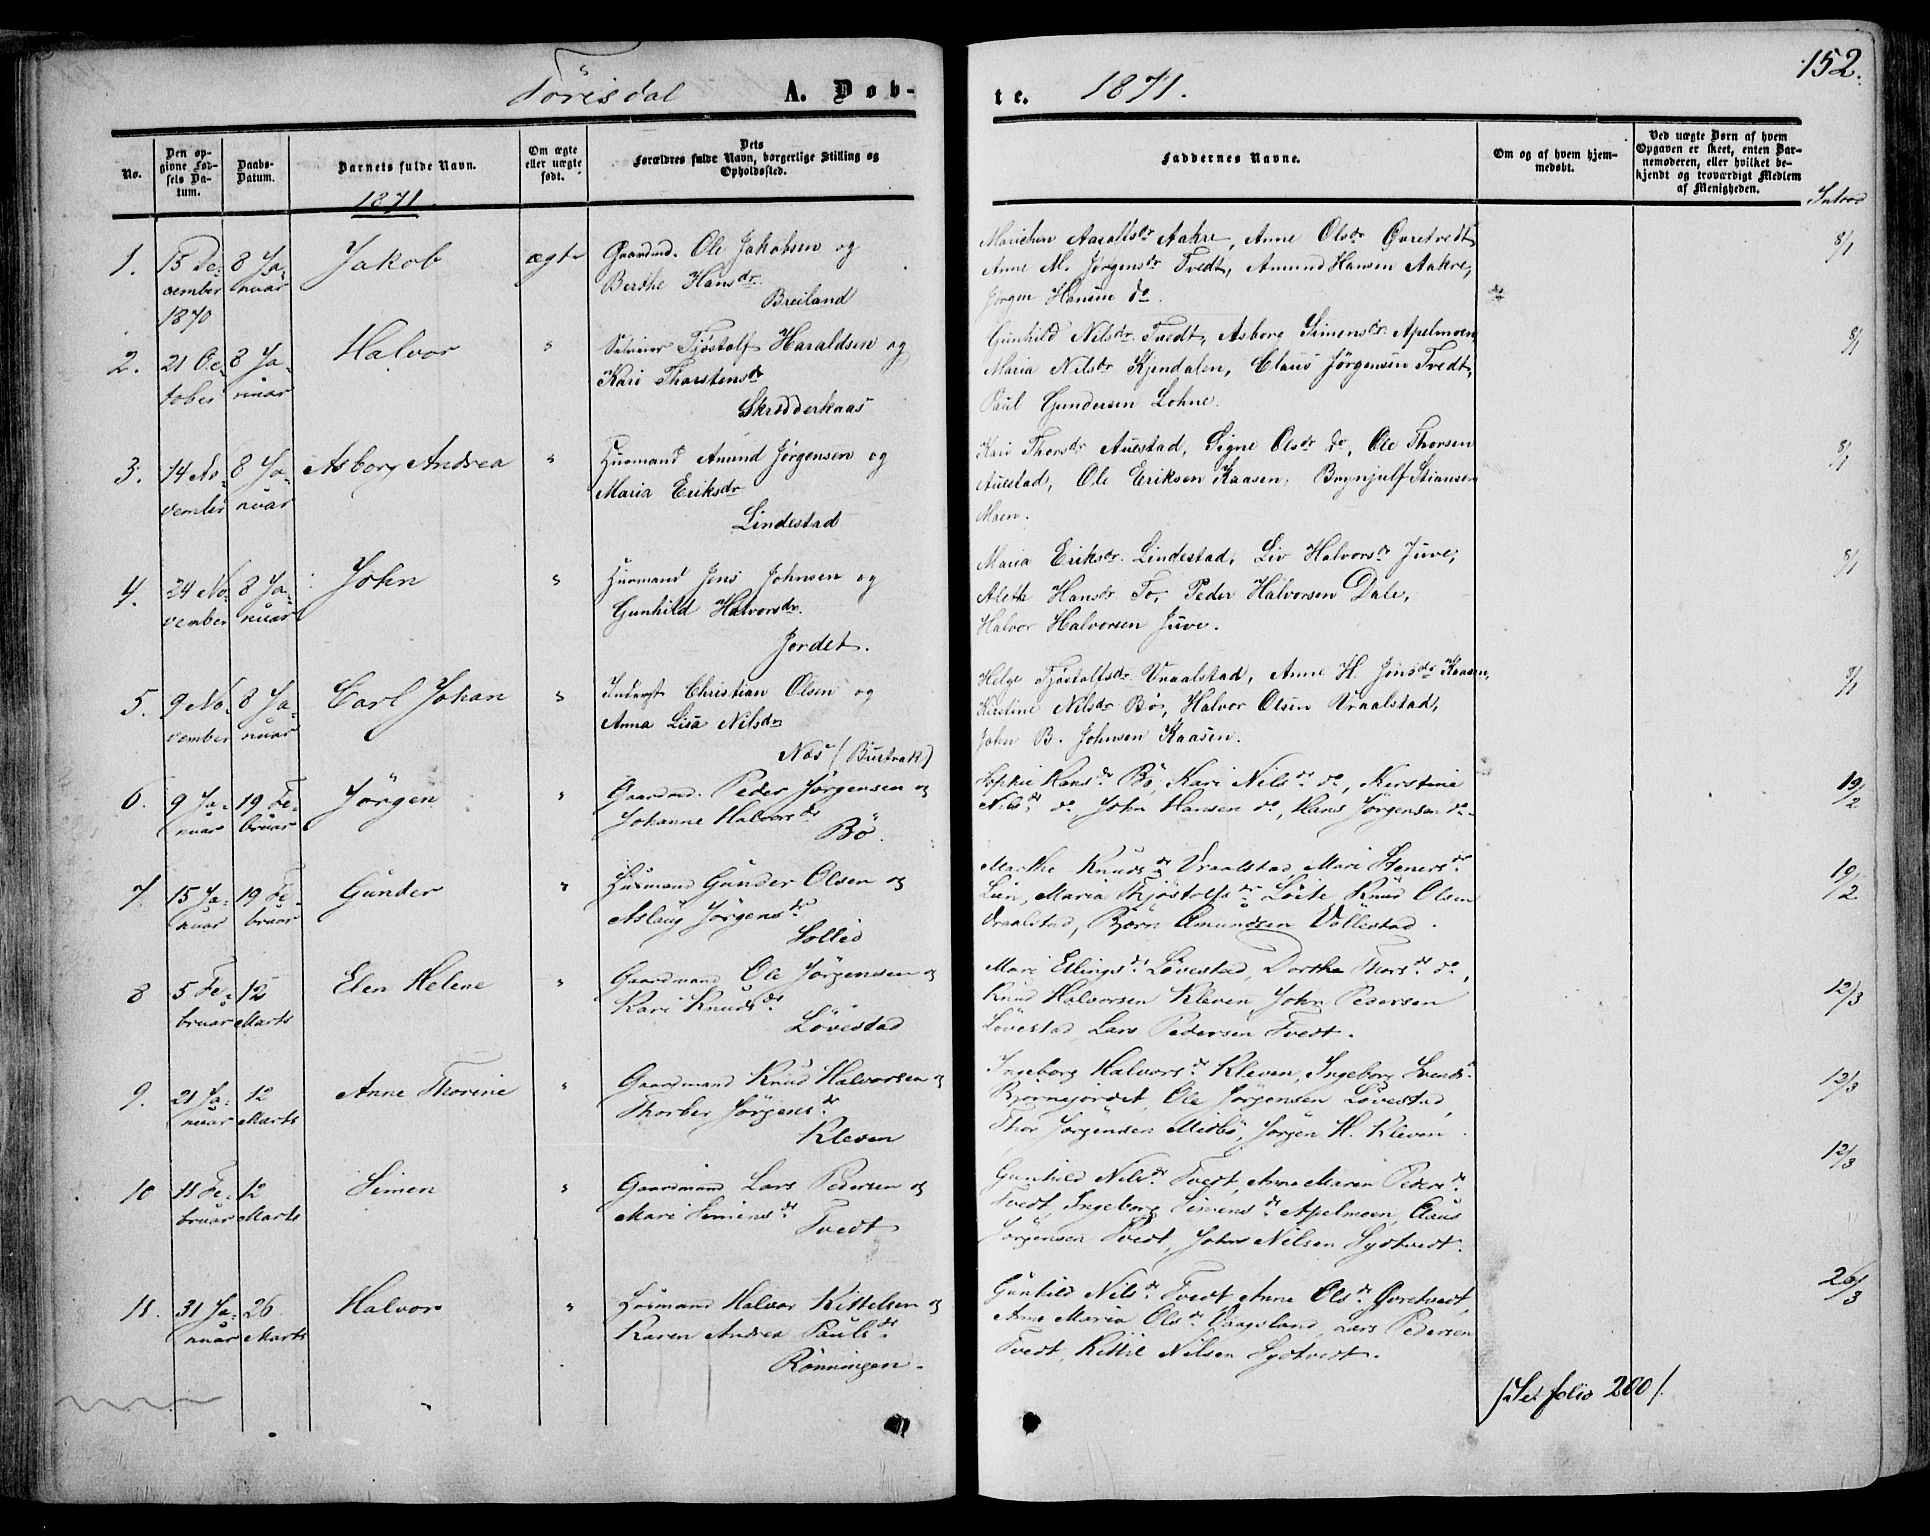 Törisdal A. Døb-
te. 1871. 152.
No.
Den op-
givne Fød-
sels Da-
tum.
Daabs-
Datum.
Barnets fulde Navn.
1871.
Om ægte
eller uægte
født.
Dets
Forældres fulde Navn, borgerlige Stilling og
Opholdssted.
Faddernes Navne.
Om og af hvem hjem-
medøbt.
Ved uægte Børn af hvem
Opgaven er skeet, enten Bar-
nemoderen, eller hvilket be-
kjendt og troværdigt Medlem
af Menigheden.
Introd
1. 15 De- 8 Ja- Jakob ægte Gaardmd. Ole Jakobsen og
cember nuar Berthe Hansdr.
1870 Breiland
Marichen Aaraltsdr Aakre, Anne Olsdr Øvretvedt 8/1
Anne M. Jørgensdr Tvedt, Amund Hansen Aakre,
Jørgen Hansen do.
2. 21 Oc- 8 Ja- Halvor " Selveier Tjöstolf Haraldsen og
tober nuar Kari Thorstensdr
Skredderkaas
Gunhild Nilsdr. Tvedt, Asborg Simensdr. Apelmoen 8/1
Maria Nilsdr Kjendalen, Claus Jörgensen Tvedt,
Paul Gundersen Lohne.
3. 14 No- 8 Ja- Asborg Andrea " Husmand Amund Jörgensen og
vember nuar Maria Eriksdr
Lindestad
Kari Thorsdr Auestad, Signe Olsdr do, Ole Thorsen 8/1
Auestad, Ole Eriksen Kaasen, Brynjulf Stiansen
Moen.
4. 24 No- 8 Ja- John " Husmand Jens Johnsen og
vember nuar Gunhild Halvorsdr.
Jordet.
Maria Eriksdr. Lindestad, Liv Halvorsdr Juve, 8/1
Aleth Hansdr. To, Peder Halvorsen Dale,
Halvor Halvorsen Juve.
5. 9 No- 8 Ja- Carl Johan " Inderst Christian Olsen og
vember nuar Anna Lisa Nilsdr
Næs (Bustrak)
Helge Tjöstolfsdr. Vraalstad, Anne H. Jensdr Kaasen, 8/1
Kirstine Nilsdr Bö, Halvor Olsen Vraalstad,
John B. Johnsen Kaasen.
6. 9 Ja- 19 Fe- Jörgen " Gaardmd. Peder Jörgensen og
nuar bruar Johanne Halvorsdr
Bö.
Sophie Hansdr Bö, Kari Nilsdr do, Kerstine 19/2
Nilsdr do, John Hansen do, Hans Jörgensen do.
7. 15 Ja- 19 Fe- Gunder " Husmand Gunder Olsen og
nuar bruar Aslaug Jörgensdr.
Sollid
Marthe Knudsdr Vraalstad, Mari Stenersdr 19/2
Lien, Maria Thjöstolfsdr Löite, Knud Olsen
Vraalstad, Björn Amundsen Vollestad.
8 5 Fe- 12 Elen Helene " Gaardmand Ole Jörgensen og
bruar Marts Kari Knudsdr.
Lövestad
Mari Ellingsdr Lövestad, Dorthe Thorsdr do, 12/3
Knud Halvorsen Kleven, John Pedersen
Lövestad, Lars Pedersen Tvedt.
9. 21 Ja- 12 Anne Thorine " Gaardmand Knud Halvorsen og
nuar Marts Thorber Jörgensdr.
Kleven
Ingeborg Halvorsdr Kleven, Ingeborg Svendsdr 12/3
Björnejordet, Ole Jörgensen Lövestad,
Thor Jörgensen Midbö, Jörgen H. Kleven.
10 11 Fe- 12 Simen " Gaardmand Lars Pedersen og
bruar Marts Mari Simensdr.
Tvedt
Gunhild Nilsdr. Tvedt, Anne Maren Pedersdr. 12/3
Tvedt, Ingeborg Simensdr. Apelmoen, Claus
Jörgensen Tvedt, John Nilsen Sydtvedt.
11. 31 Ja- 26 Halvor " Husmand Halvor Kittelsen og
nuar Marts Karen Andrea Paulsdr.
Rönningen.
Gunhild Nilsdr Tvedt, Anne Olsdr Øvretvedt, 26/3
Anne Maria Olsdr Vaagsland, Lars Pedersen
Tvedt, Kittil Nilsen Sydtvedt.
/See folio 200/.